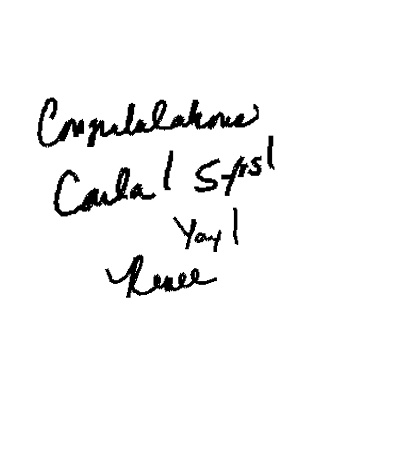 Congratulations
Carla! 5 yrs!
Yay!
Renee